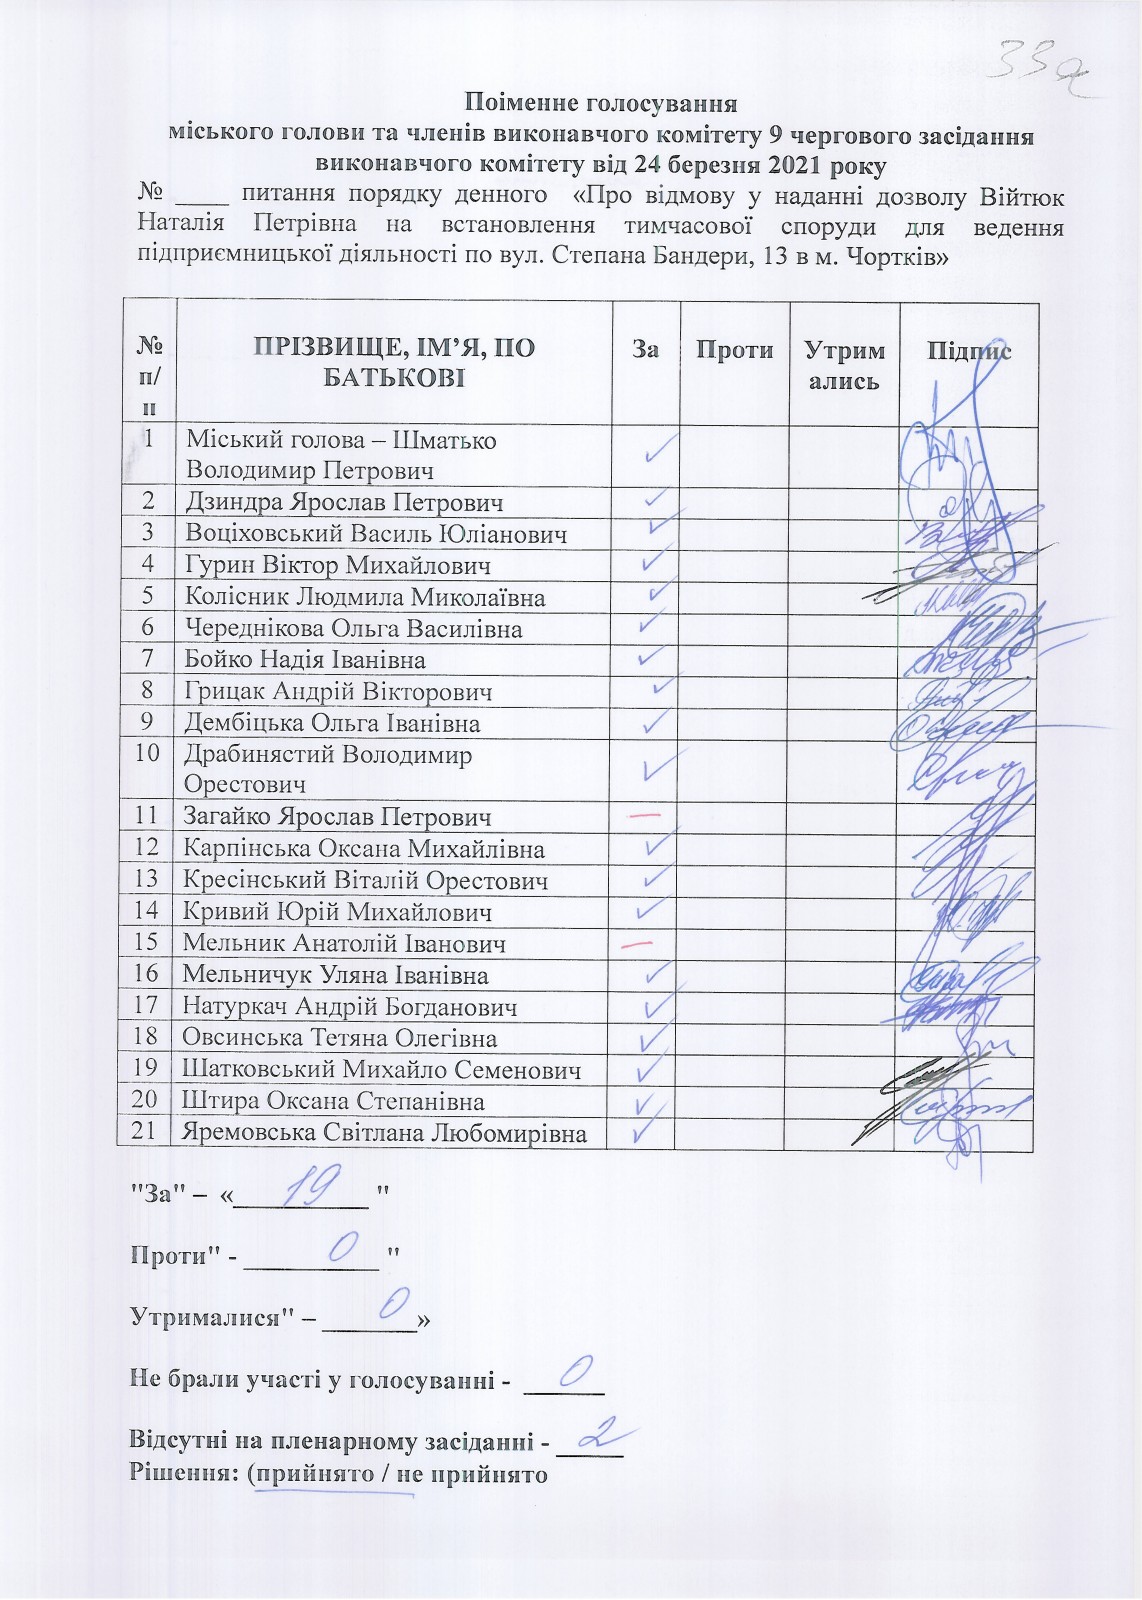 33а
Поіменне голосування
міського голови та членів виконавчого комітету 9 чергового засідання
виконавчого комітету від 24 березня 2021 року
№ ____ питання порядку денного «Про відмову у наданні дозволу Війтюк
Наталія Петрівна на встановлення тимчасової споруди для ведення
підприємницької діяльності по вул. Степана Бандери, 13 в м. Чортків»
№ п/п ПРІЗВИЩЕ, ІМ’Я, ПО БАТЬКОВІ За Проти Утримались Підпис
1 Міський голова – Шматько
Володимир Петрович
2 Дзиндра Ярослав Петрович
3 Воціховський Василь Юліанович
4 Гурин Віктор Михайлович
5 Колісник Людмила Миколаївна
6 Череднікова Ольга Василівна
7 Бойко Надія Іванівна
8 Грицак Андрій Вікторович
9 Дембіцька Ольга Іванівна
10 Драбинястий Володимир
Орестович
11 Загайко Ярослав Петрович —
12 Карпінська Оксана Михайлівна
13 Кресінський Віталій Орестович
14 Кривий Юрій Михайлович
15 Мельник Анатолій Іванович —
16 Мельничук Уляна Іванівна
17 Натуркач Андрій Богданович
18 Овсинська Тетяна Олегівна
19 Шатковський Михайло Семенович
20 Штира Оксана Степанівна
21 Яремовська Світлана Любомирівна
"За" – « 19 "
Проти" - 0 "
Утрималися" – 0 »
Не брали участі у голосуванні - 0
Відсутні на пленарному засіданні - 2
Рішення: (прийнято / не прийнято